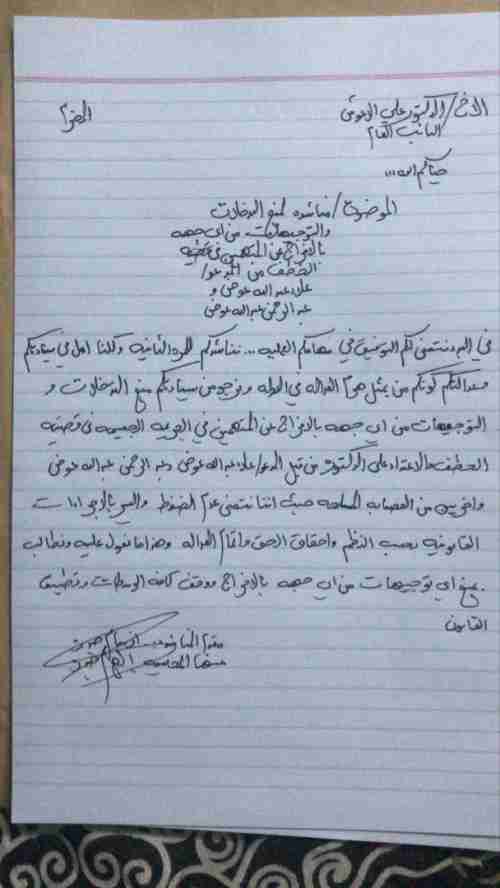 الاخ/ الدكتور علي الاعوش المحترم
النائب العام
حياكم الله ،،،
الموضوع/ مناشده لمنع التدخلات
والتوجيهات من اي جهه
بالافراج عن المتهمين في قضية
الخطف من المدعو/
علاء عبدالله عوض و
عبد الرحمن عبدالله عوض
في البدء نتمنى لكم التوفيق في مهامكم العمليه ... نناشدكم للمره الثانيه وكلنا امل في سيادتكم
وعدالتكم كونكم من يمثل هرم العداله في الدوله ونرجو من سيادتكم منع التدخلات و
التوجيهات من اي جهه بالافراج عن المتهمين في الجريمه الجسيمه في قضية
الخطف والاعتداء على الدكتور من قبل المدعو/ علاء عبدالله عوض وعبد الرحمن عبدالله عوض
واخريين من العصابه المسلحه حيث اننا نتمنى عدم الضغوط والسير بالاجراءات
القانونيه بحسب النظم واحقاق الحق واتمام العداله وهذا ما نعول عليه ونطالب
بمنع اي توجيهات من اي جهه بالافراج ووقف كافه الوساطات وتطبيق
القانون
مقدم المناشده
عنها المحاميه